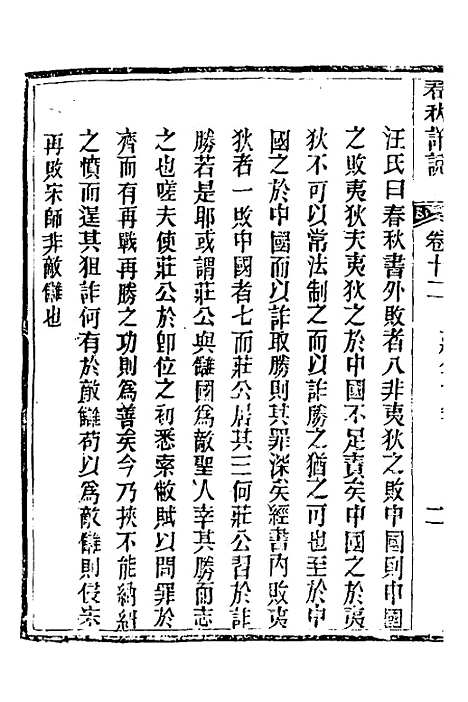 春秋詳說
卷十二
二
汪氏曰春秋書外敗者八非夷狄之敗中國則中國
之敗夷狄夫夷狄之於中國不足責矣中國之於夷
狄不可以常法制之而以詐勝之猶之可也至於中
國之於中國而以詐取勝則其罪深矣經書內敗夷
狄者一敗中國者七而莊公居其三何莊公習於詐
勝若是耶或謂莊公與讎國為敵聖人幸其勝而志
之也嗟夫使莊公於卽位之初悉索敝賦以問罪於
齊而有再戰再勝之功則為善矣今乃挾不能納糾
之憤而逞其狙詐何有於敵讎苟以為敵讎則侵宋
再敗宋師非敵讎也